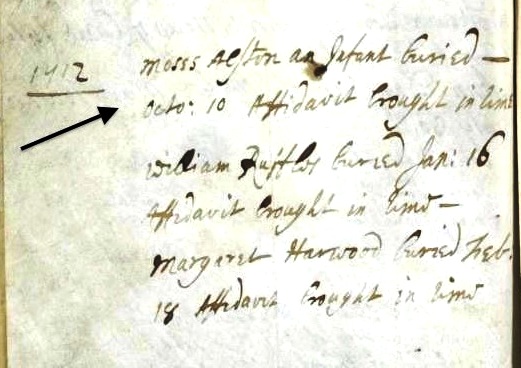 1712
Moses Alston an Infant buried —
Octo: 10 Affidavit brought in time
William Ruffles buried Jan: 16
Affidavit brought in time —
Margaret Harwood buried Feb.
18 Affidavit brought in time